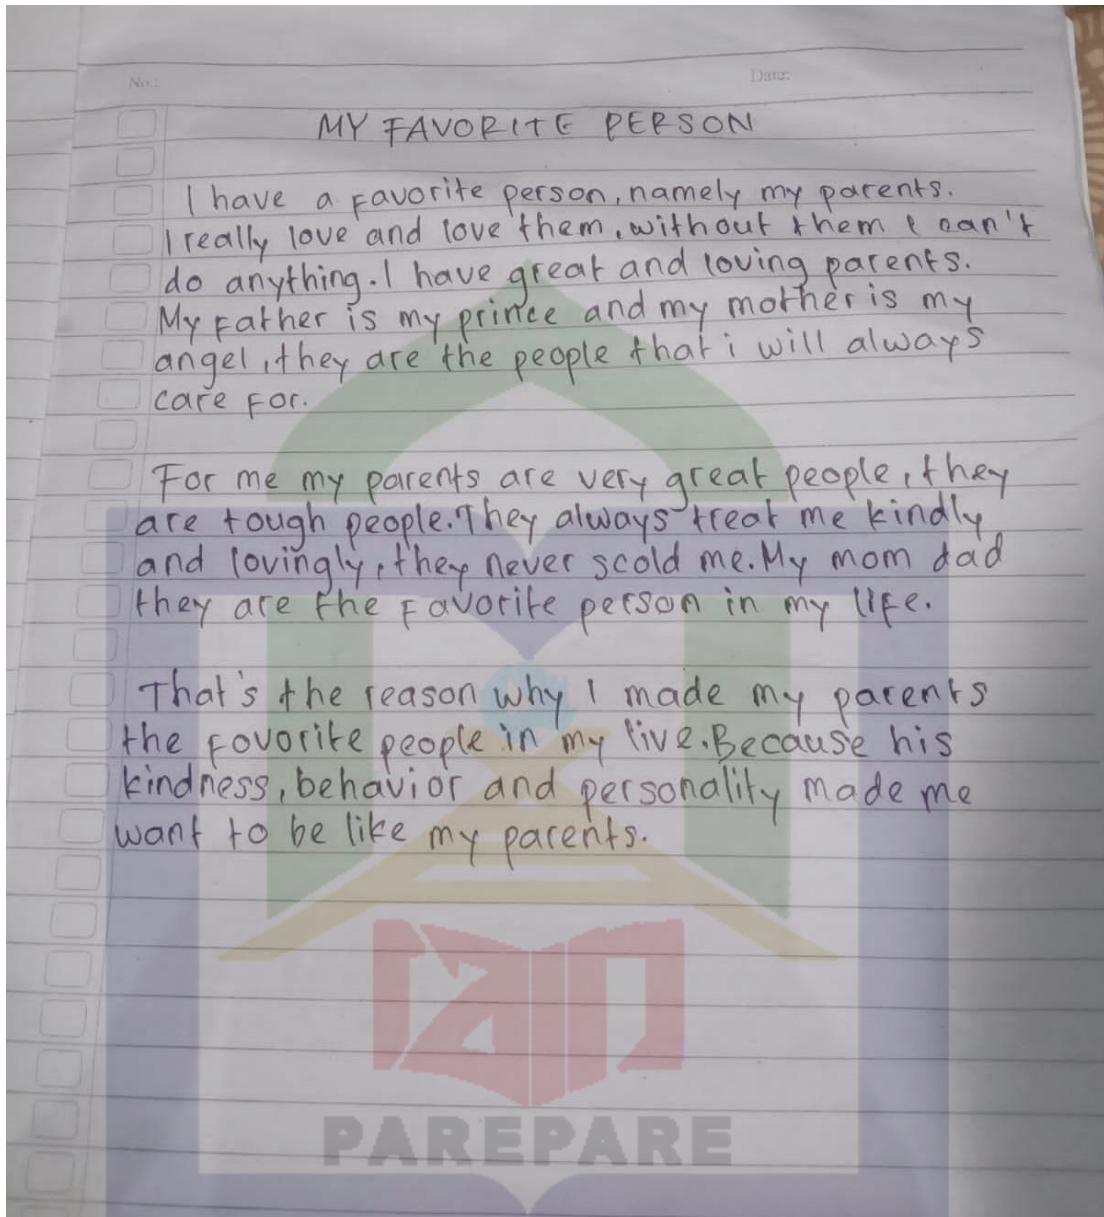 No.:
Date:
MY FAVORITE PERSON
I have a favorite person, namely my parents.
I really love and love them, without them I can't
do anything. I have great and loving parents.
My father is my prince and my mother is my
angel, they are the people that i will always
care for.
For me my parents are very great people, they
are tough people. They always treat me kindly
and lovingly, they never scold me. My mom dad
they are the favorite person in my life.
That's the reason why I made my parents
the fovorite people in my live. Because his
kindness, behavior and personality made me
want to be like my parents.
PAREPARE